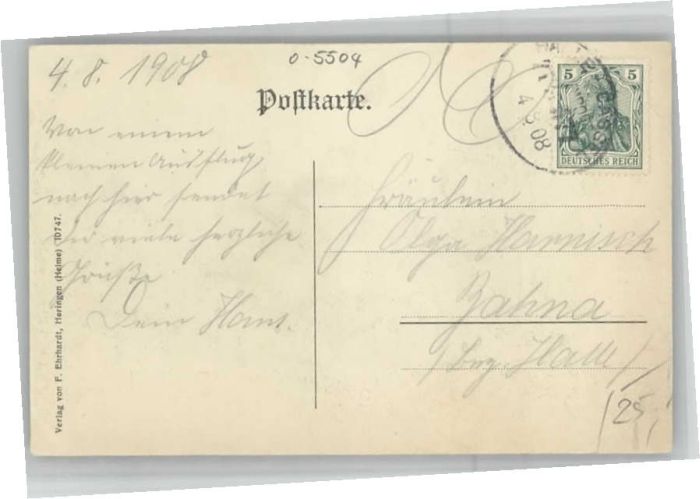 4. 8. 1908
0-5504
Postkarte.
Von einem
kleinen Ausflug
nach hier sendet
Dir viele herzliche
Grüße
Dein Hans.
5 5
DEUTSCHES REICH
4.8.08
Fräulein
Olga Harnisch
Zahna
/Bez. Halle/
25,
Verlag von F. Ehrhardt, Heringen (Helme) 70747.